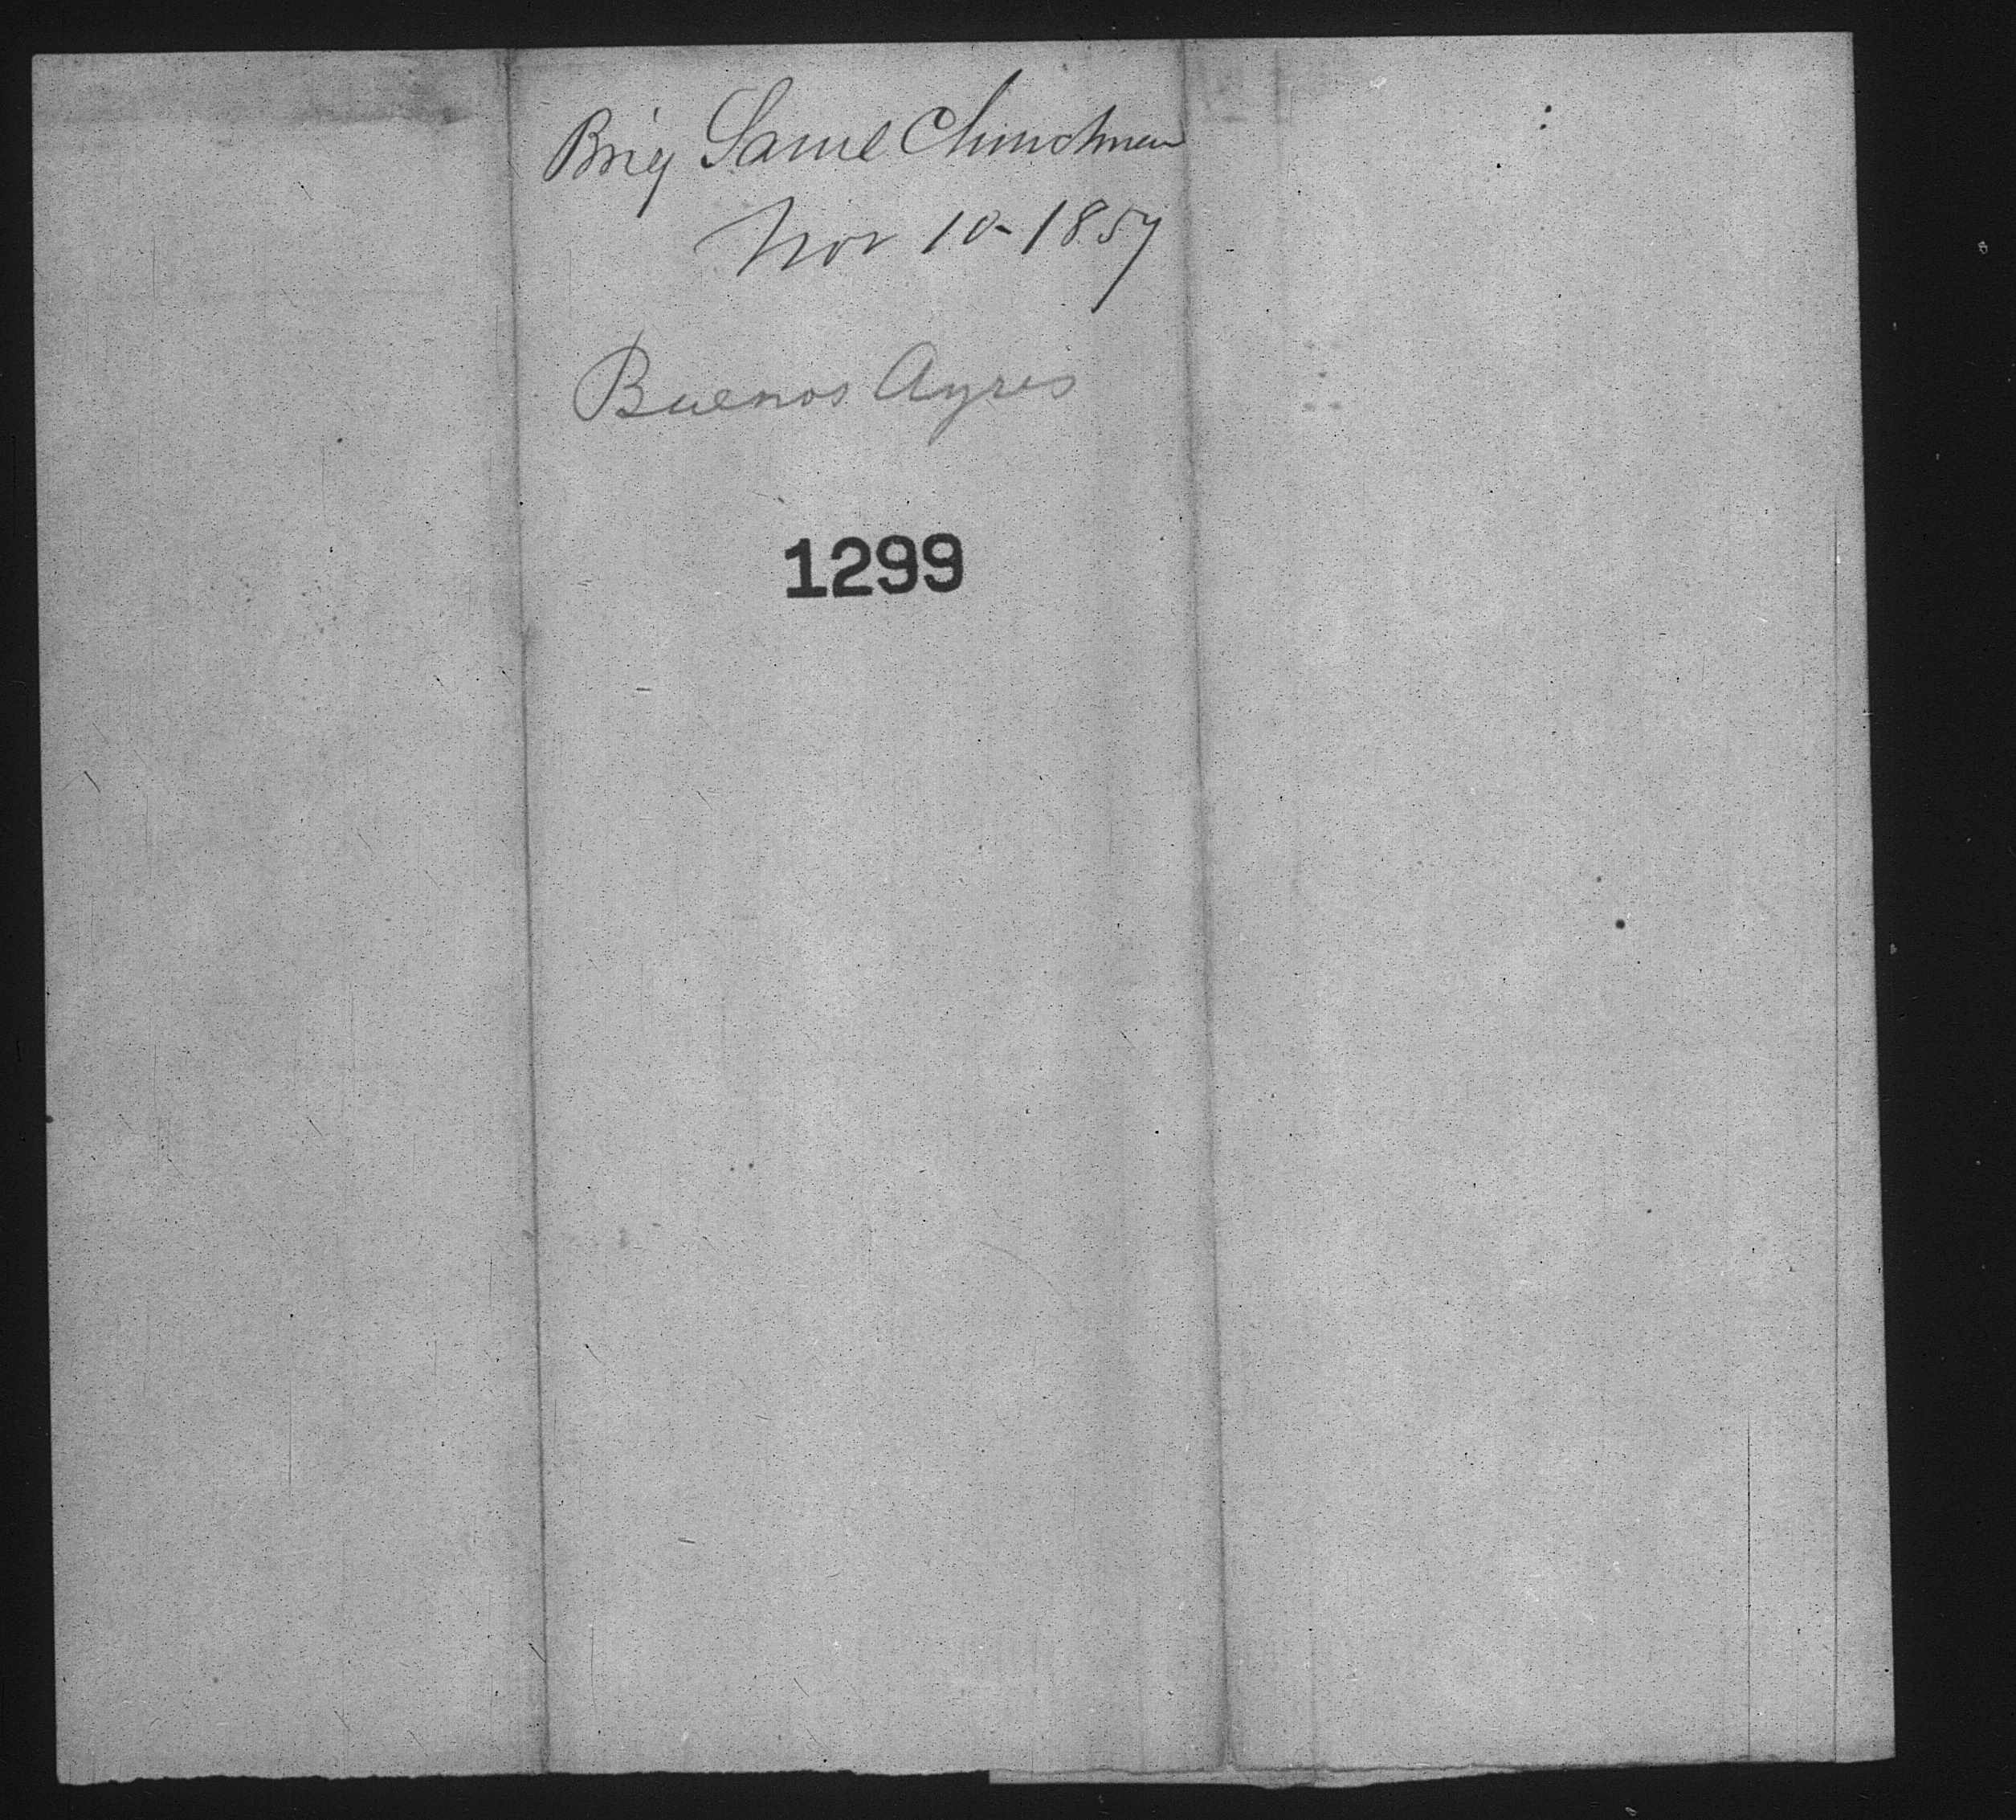 Brig Saml Churchman
Nov 10-1857
Buenos Ayres
1299